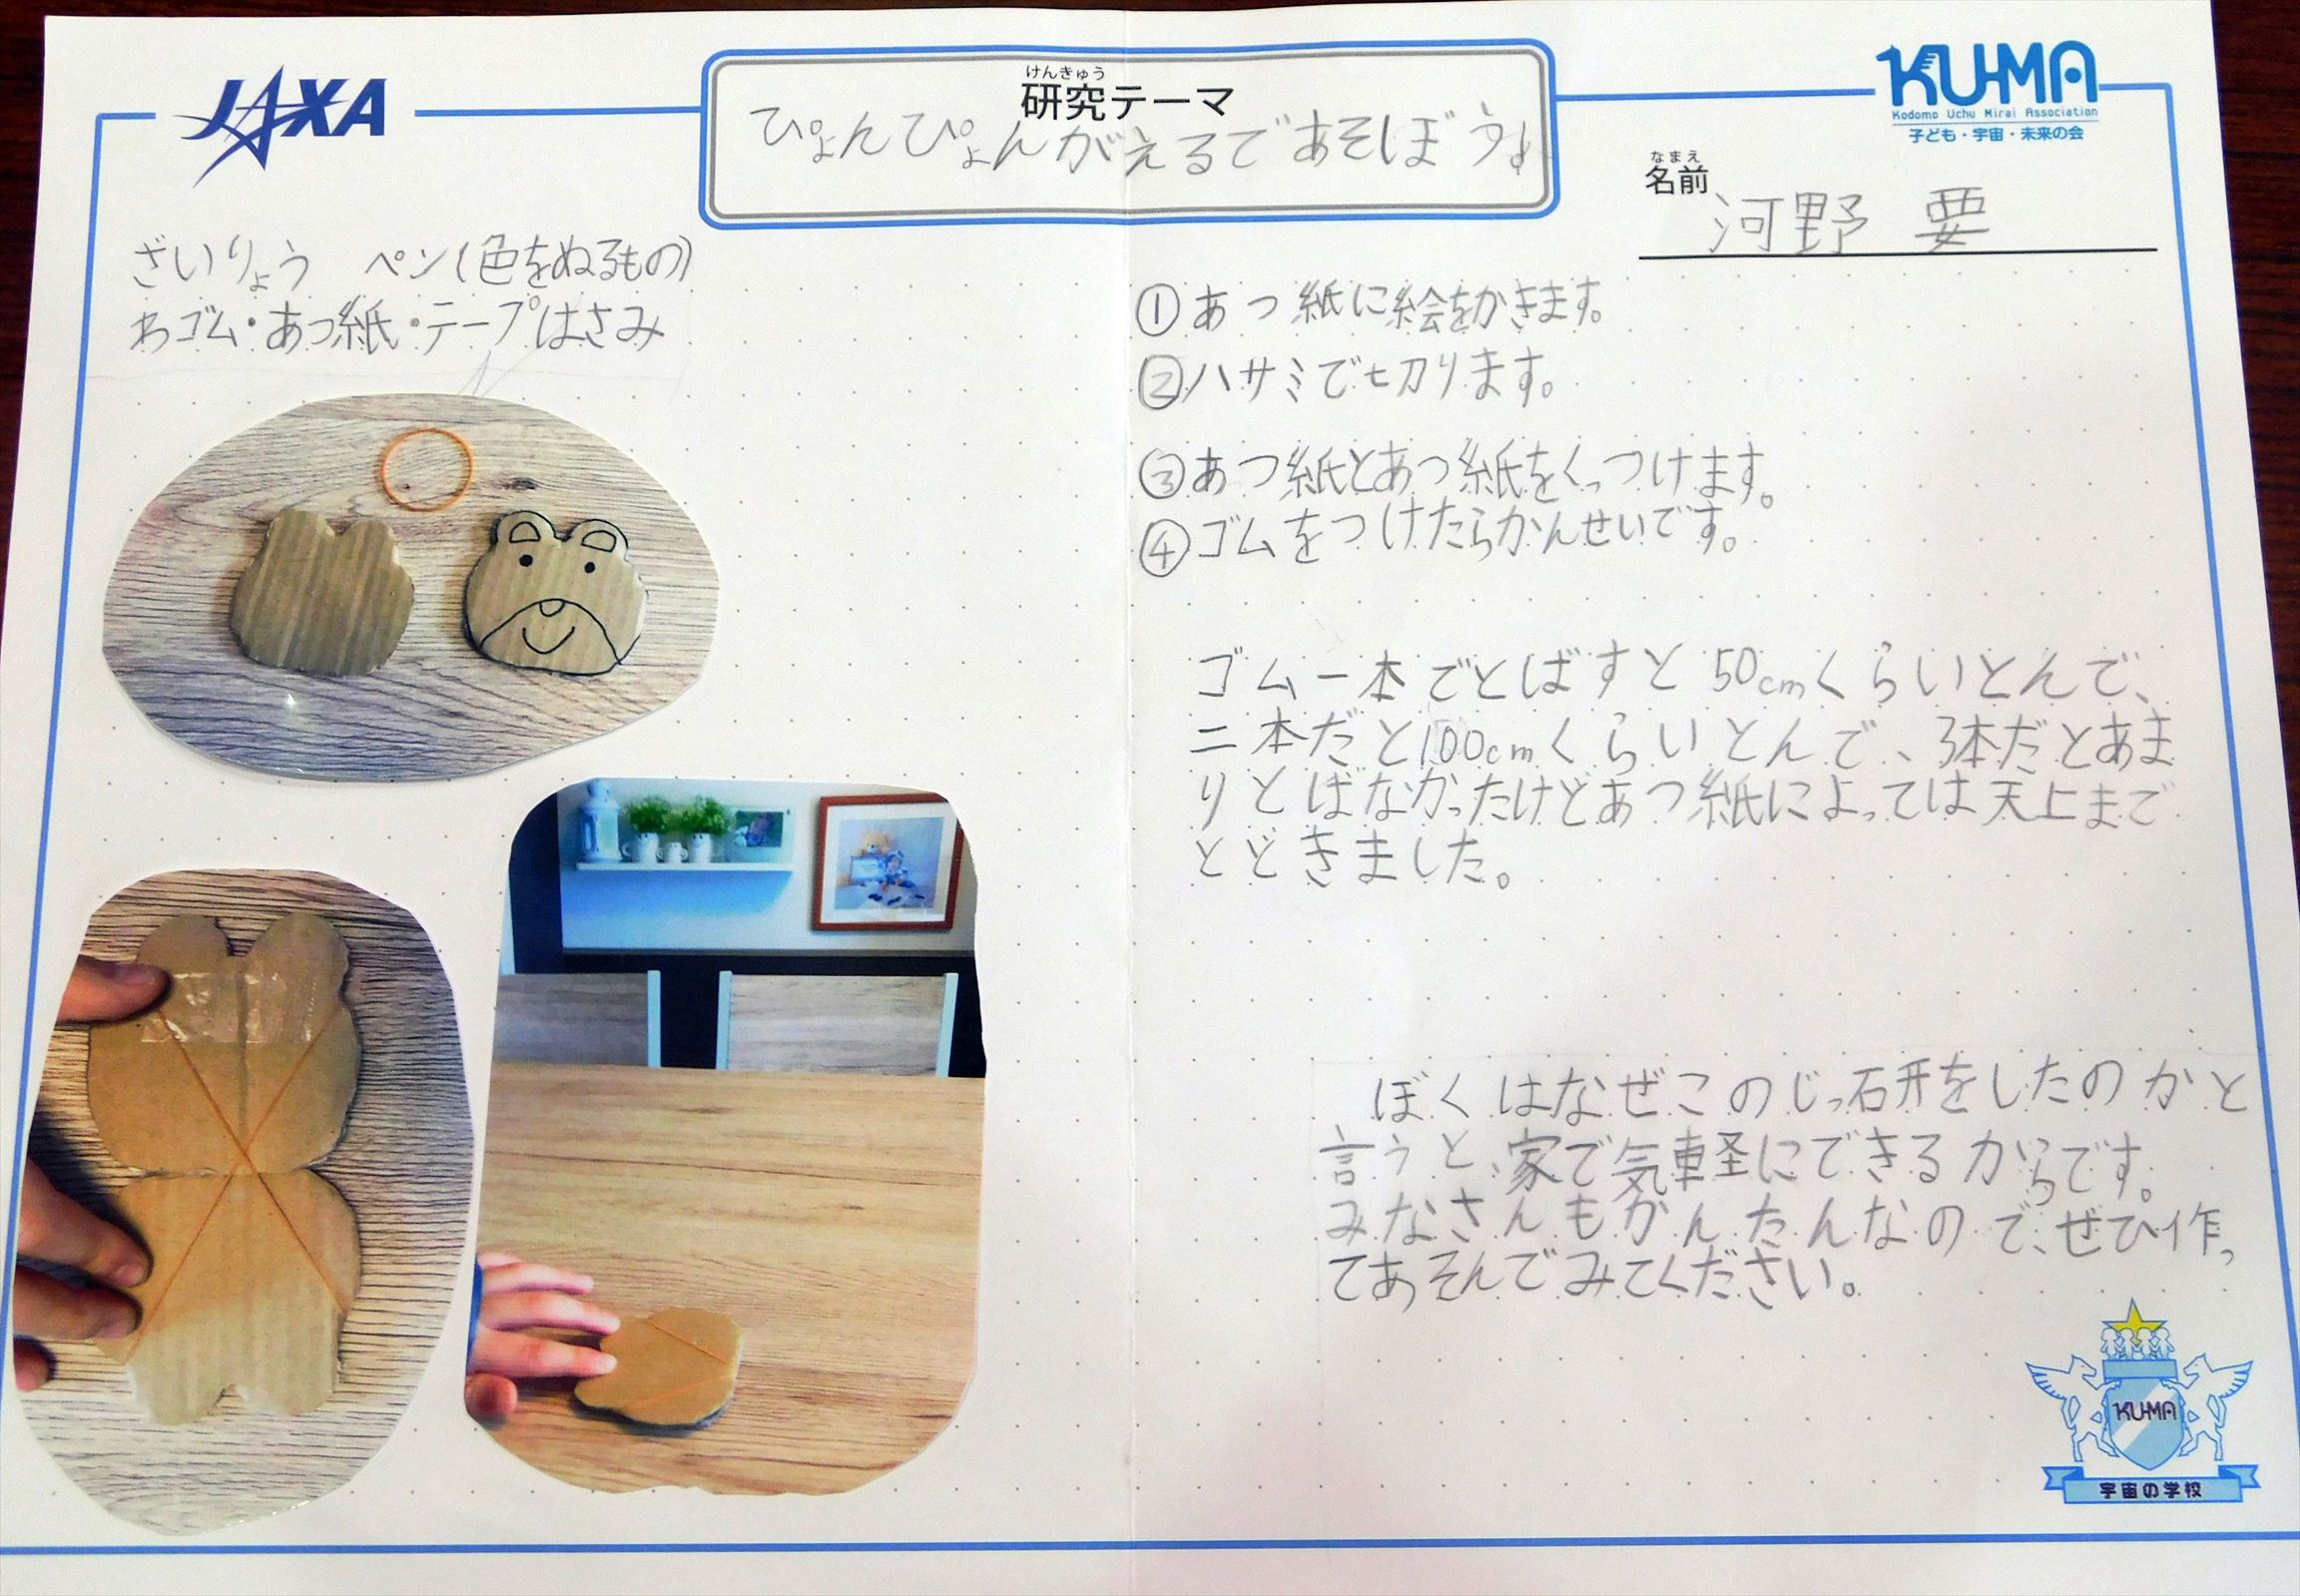 JAXA
けんきゅう
研究テーマ
ぴょんぴょんがえるであそぼう!
KUMA
Kodomo Uchu Mirai Association
子ども・宇宙・未来の会
なまえ
名前
河野 要
ざいりょう ペン(色をぬるもの)
わゴム・あつ紙・テープはさみ
①あつ紙に絵をかきます。
②ハサミで切ります。
③あつ紙とあつ紙をくっつけます。
④ゴムをつけたらかんせいです。
ゴム一本でとばすと50cmくらいとんで、
二本だと100cmくらいとんで、3本だとあま
りとばなかったけどあつ紙によっては天上まで
とどきました。
ぼくはなぜこのじっ研をしたのかと
言うと、家で気軽にできるからです。
みなさんもかんたんなので、ぜひ作っ
てあそんでみてください。
KUMA
宇宙の学校